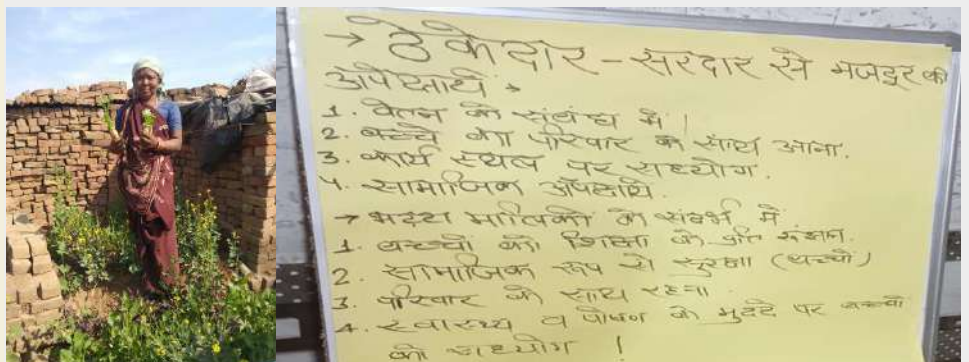 → ठेकेदार - सरदार से मजदूर की
अपेक्षायें →
1. वेतन के संबंध में !
2. बच्चे का परिवार के साथ आना.
3. कार्य स्थल पर सहयोग.
4. सामाजिक अपेक्षायें.
→ भट्टा मालिकों के संदर्भ में
1. बच्चों की शिक्षा के प्रति रुझान.
2. सामाजिक रूप से सुरक्षा (बच्चों)
3. परिवार के साथ रहना.
4. स्वास्थ्य व पोषण के मुद्दे पर बच्चों
को सहयोग !